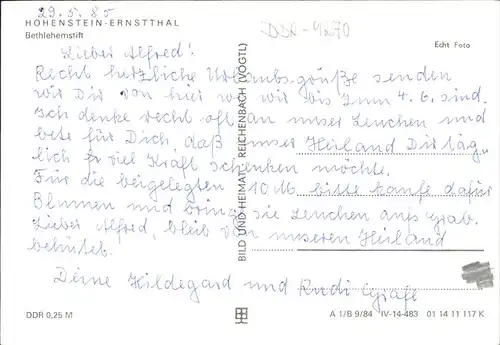 29.5.85
HOHENSTEIN-ERNSTTHAL
Bethlehemstift
DDR-9270
Echt Foto
Lieber Alfred!
Recht herzliche Urlaubsgrüße senden
wir Dir von hier wo wir bis zum 4.6. sind.
Ich denke recht oft an unser Lenchen und
bete für Dich, daß unser Heiland Dir täg„
lich viel Kraft schenken möchte.
Für die beigelegten 10 M. bitte kaufe dafür
Blumen und bring sie Lenchen aufs Grab.
Lieber Alfred, bleib von unseren Heiland
behütet.
Deine Hildegard und Rudi Gräfe
BILD UND HEIMAT REICHENBACH (VOGTL)
DDR 0,25 M
A 1/B 9/84 IV-14-483 01 14 11 117 K